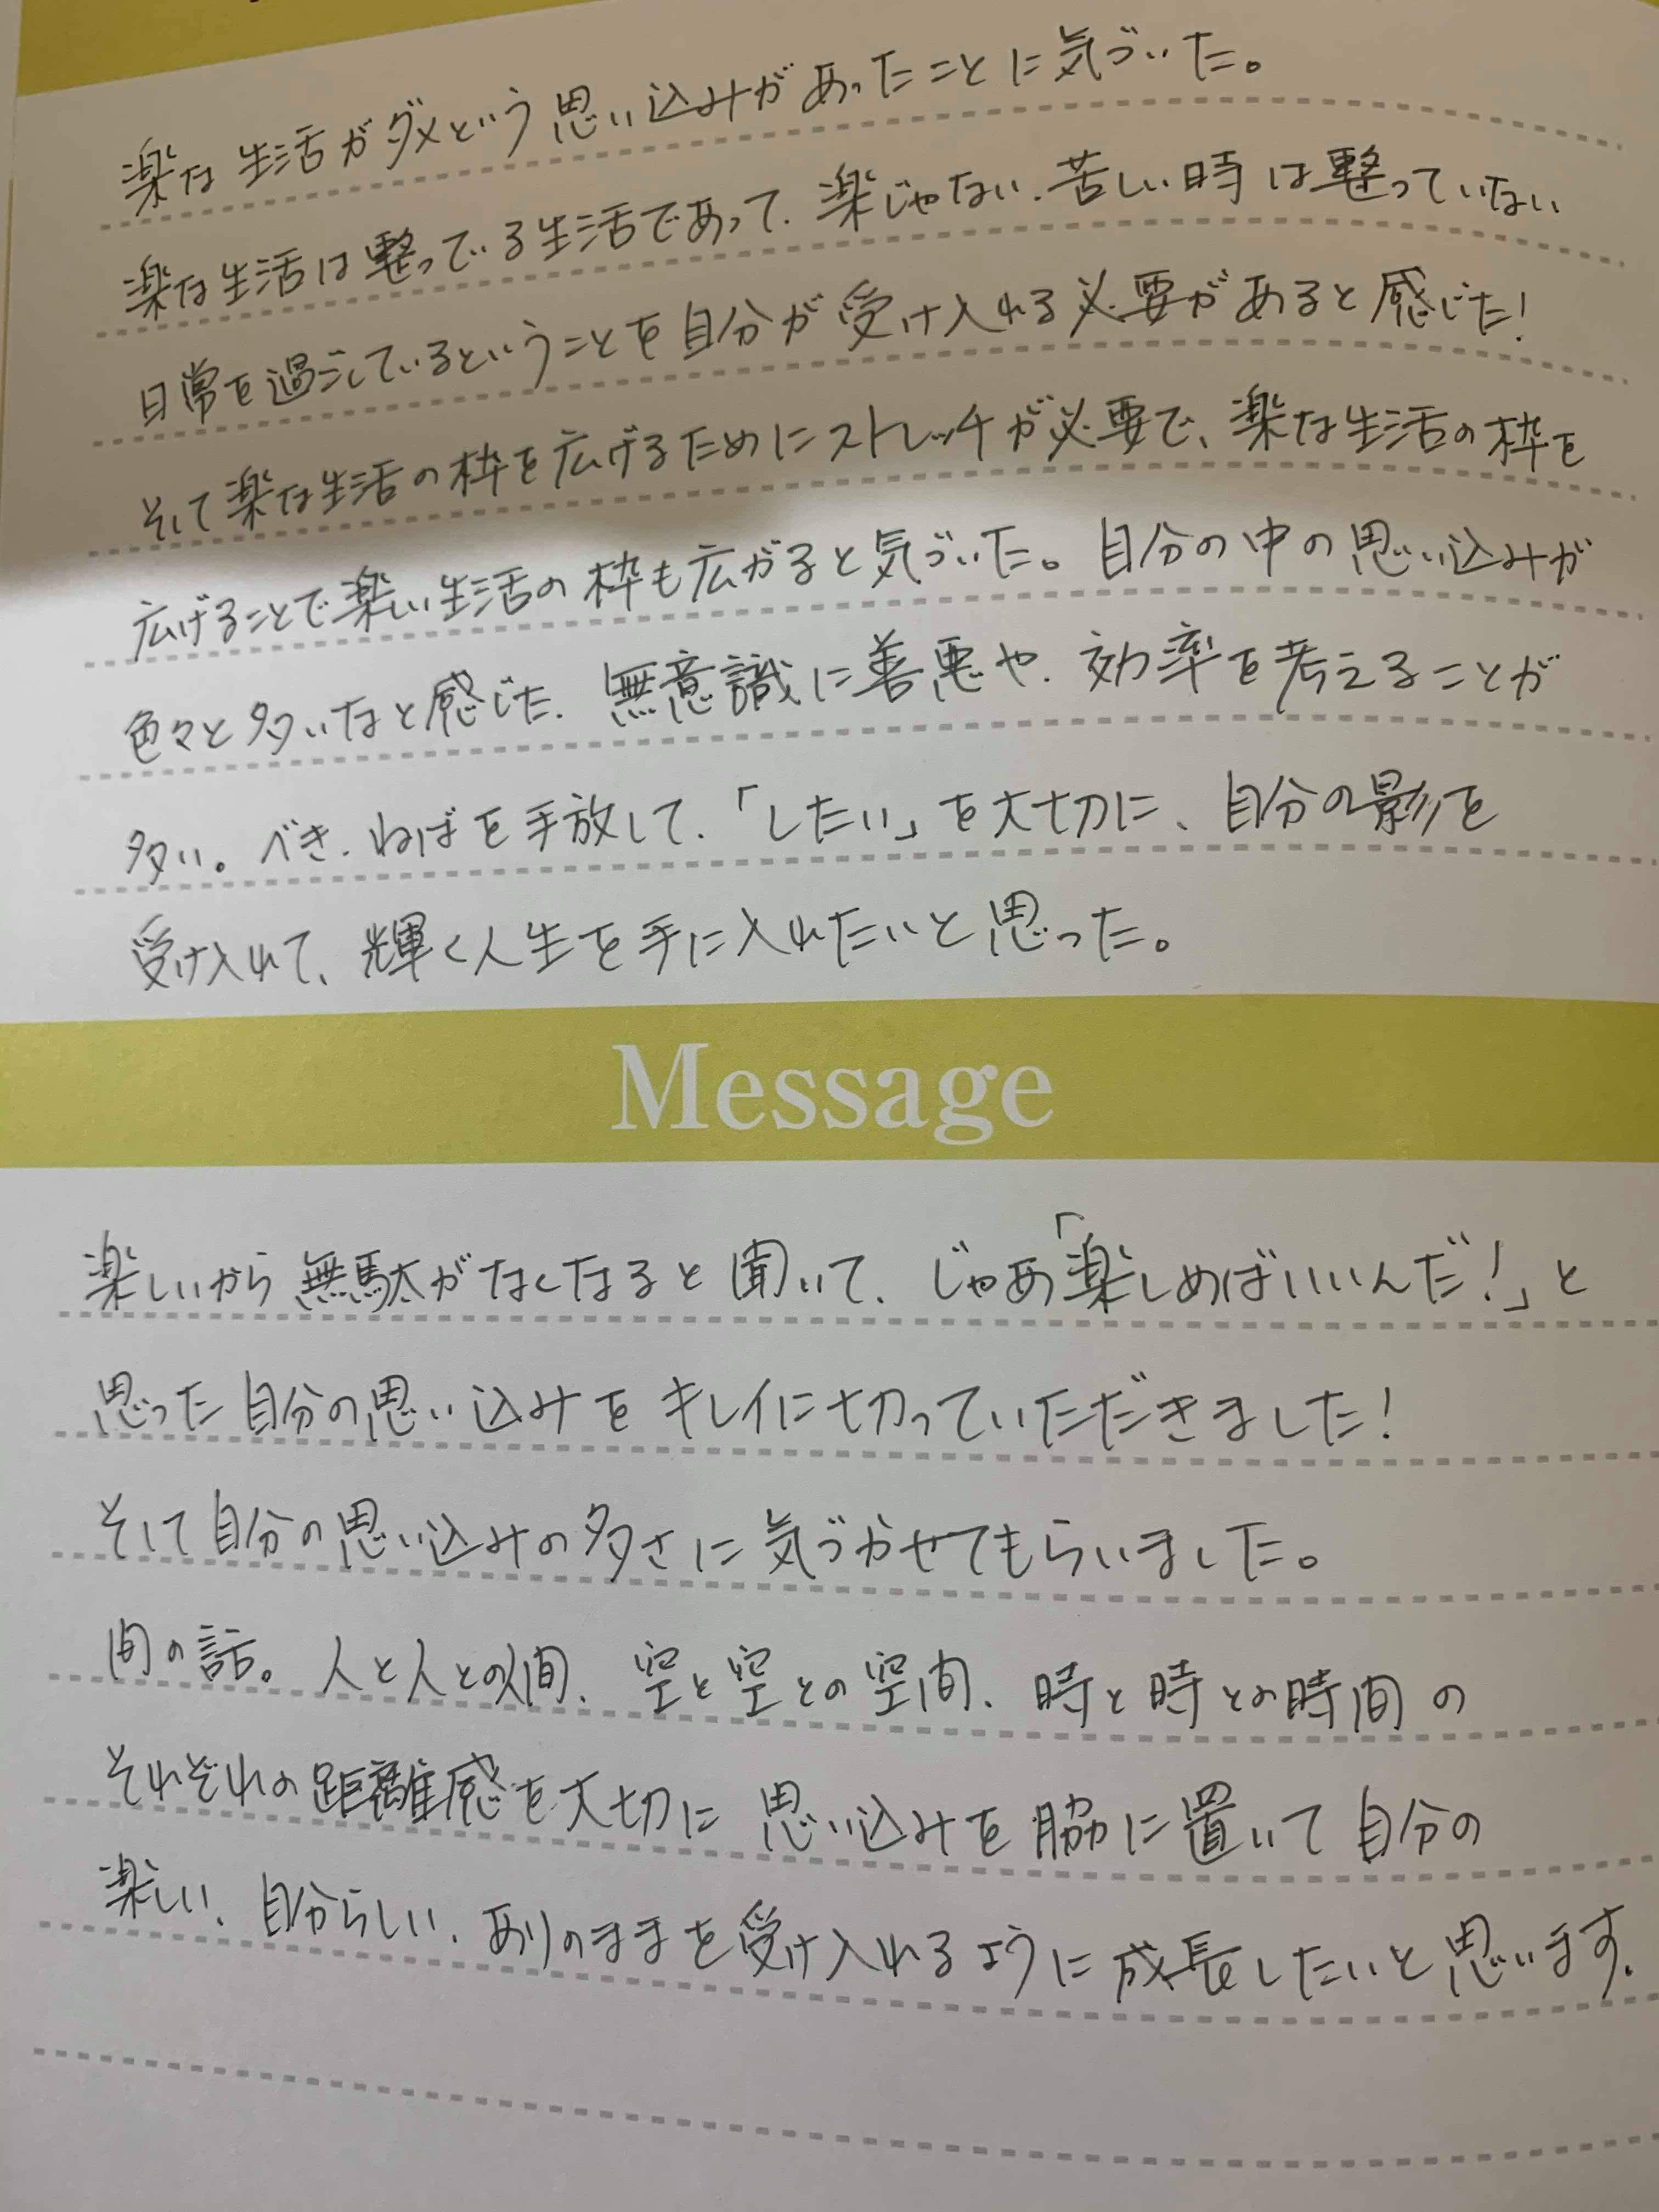 楽な生活がダメという思い込みがあったことに気づいた。
楽な生活は整っている生活であって、楽じゃない、苦しい時は整っていない
日常を過ごしているということを自分が受け入れる必要があると感じた!
そして楽な生活の枠を広げるためにストレッチが必要で、楽な生活の枠を
広げることで楽しい生活の枠も広がると気づいた。自分の中の思い込みが
色々と多いなと感じた、無意識に善悪や、効率を考えることが
多い。べき、ねばを手放して、「したい」を大切に、自分の影を
受け入れて、輝く人生を手に入れたいと思った。
Message
楽しいから無駄がなくなると聞いて、じゃあ「楽しめばいいんだ!」と
思った自分の思い込みをキレイに切っていただきました!
そして自分の思い込みの多さに気づかせてもらいました。
間の話。人と人との人間、空と空との空間、時と時との時間の
それぞれの距離感を大切に思い込みを脇に置いて自分の
楽しい、自分らしい、ありのままを受け入れるように成長したいと思います。